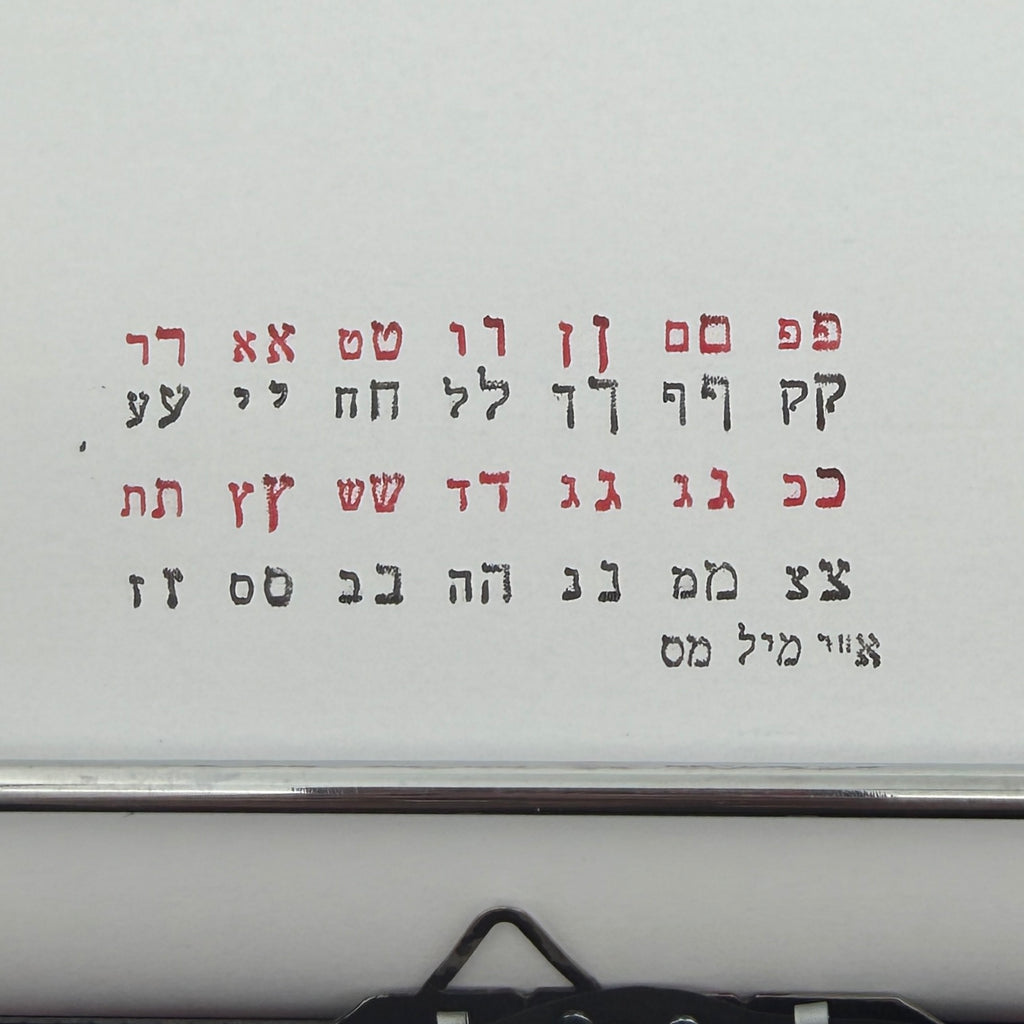 פפ םם ןן וו טט אא רר
קק ףף ךך לל חח יי עע
ככ גג גג דד שש ץץ תת
צצ ממ ננ הה בב סס זז
מיל מס